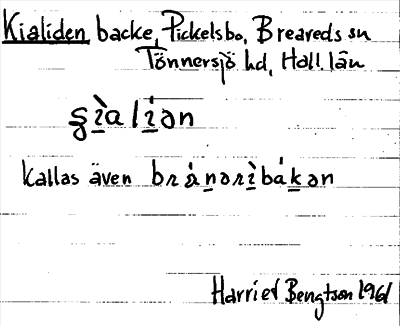 Kialiden backe, Pickelsbo, Breareds sn
Tönnersjö hd, Hall. län
ʂìalíən
Kallas även bránərìbákən
Harriet Bengtson 1961